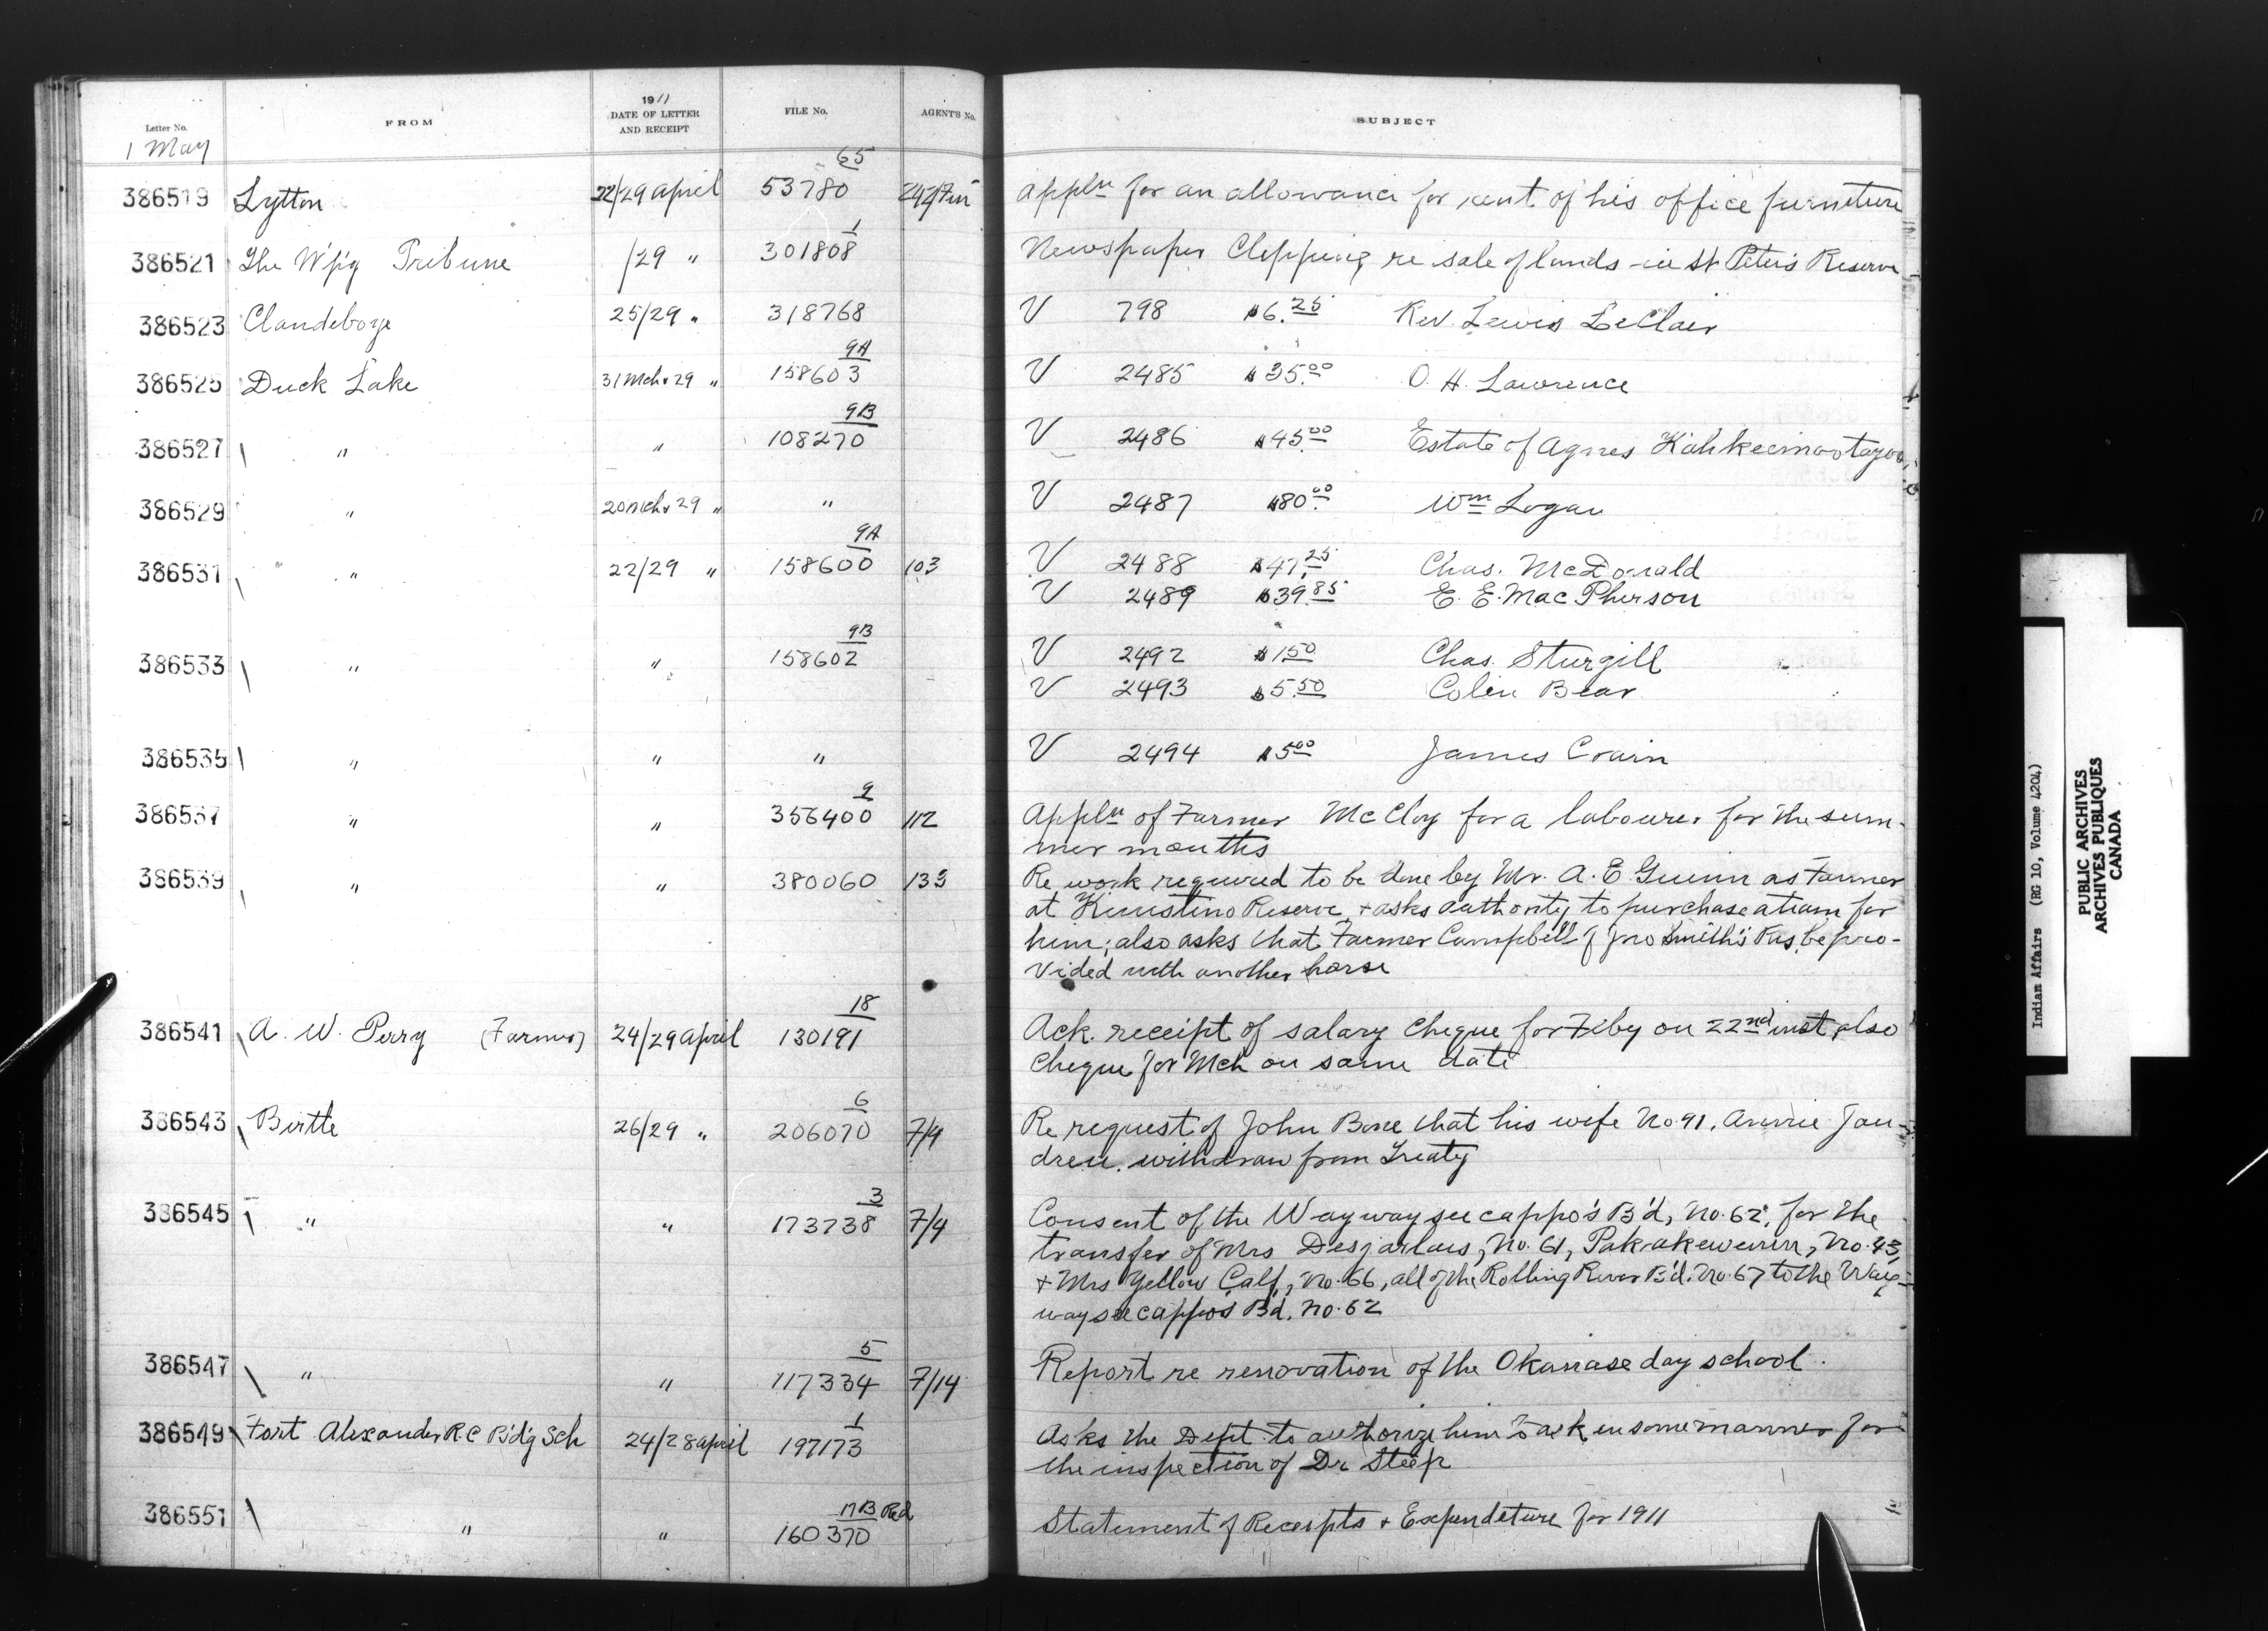 Letter No.
FROM
1911
DATE OF LETTER
AND RECEIPT
FILE No.
AGENT'S No.
SUBJECT
1 May
65
386519 Lytton 22/29 April 53780 242/Fin Appln for an allowance for rent of his office furniture
1
386521 The W'p'g Tribune /29 " 301808 Newspaper Clipping re sale of lands in St Peter's Reserve
386523 Clandeboye 25/29 " 318768 V 798 $6.25 Rev. Lewis LeClair
9A
386525 Duck Lake 31 Mch & 29 " 158603 V 2485 $35.00 O. H. Lawrence
9B
386527 " " 108270 V 2486 $45.00 Estate of Agnes
386529 " 20 Mch & 29 " " V 2487 $80.00 Wm Logan
9A
386531 " 22/29 " 158600 103 V 2488 $47.25 Chas. McDonald
V 2489 $39.85 E. E. MacPherson
9B
386533 " " 158602 V 2492 $1.50 Chas. Sturgill
V 2493 $5.50 Colin Bear
386535 " " " V 2494 $5.00 James Crain
9
386537 " " 356400 112 Appln of Farmer McCloy for a labourer for the sum-
mer months
386539 " " 380060 133 Re work required to be done by Mr. A. E. Guinn as Farmer
at Kinistino Reserve, & asks authority to purchase a team for
him; also asks that Farmer Campbell of Jno Smith's Res. be pro-
vided with another horse
18
386541 A. W. Perry (Farmer) 24/29 April 130191 Ack. receipt of salary cheque for Feby on 22nd inst, also
cheque for Mch on same date
6
386543 Birtle 26/29 " 206070 7/9 Re request of John Bone that his wife No 91, Annie Jan-
dreu. withdraw from Treaty
3
386545 " " 173738 7/4 Consent of the Waywayseecappo's B'd, No. 62, for the
transfer of Mrs Desjarlais, No. 61, Pakakewenin, No. 43,
& Mrs Yellow Calf, No. 66, all of the Rolling River B'd. No. 67 to the Way-
wayseecappo's Bd. No. 62
5
386547 " " 117334 7/14 Report re renovation of the Okanase day school.
1
386549 Fort Alexander R C B'd'g Sch 24/28 April 197173 Asks the Dept. to authorize him to ask in some manner for
the inspection of Dr Steep
17B Red
386551 " " 160370 Statement of Receipts & Expenditure for 1911
Indian Affairs (RG 10, Volume 4204)
PUBLIC ARCHIVES
ARCHIVES PUBLIQUES
CANADA